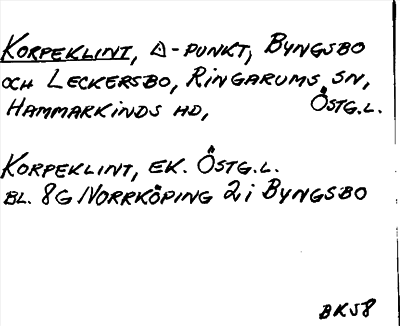 KORPEKLINT, △-PUNKT, BYNGSBO
OCH LECKERSBO, RINGARUMS SN,
HAMMARKINDS HD, ÖSTG.L.
KORPEKLINT, EK. ÖSTG.L.
BL. 8G NORRKÖPING 2i BYNGSBO
BKS8